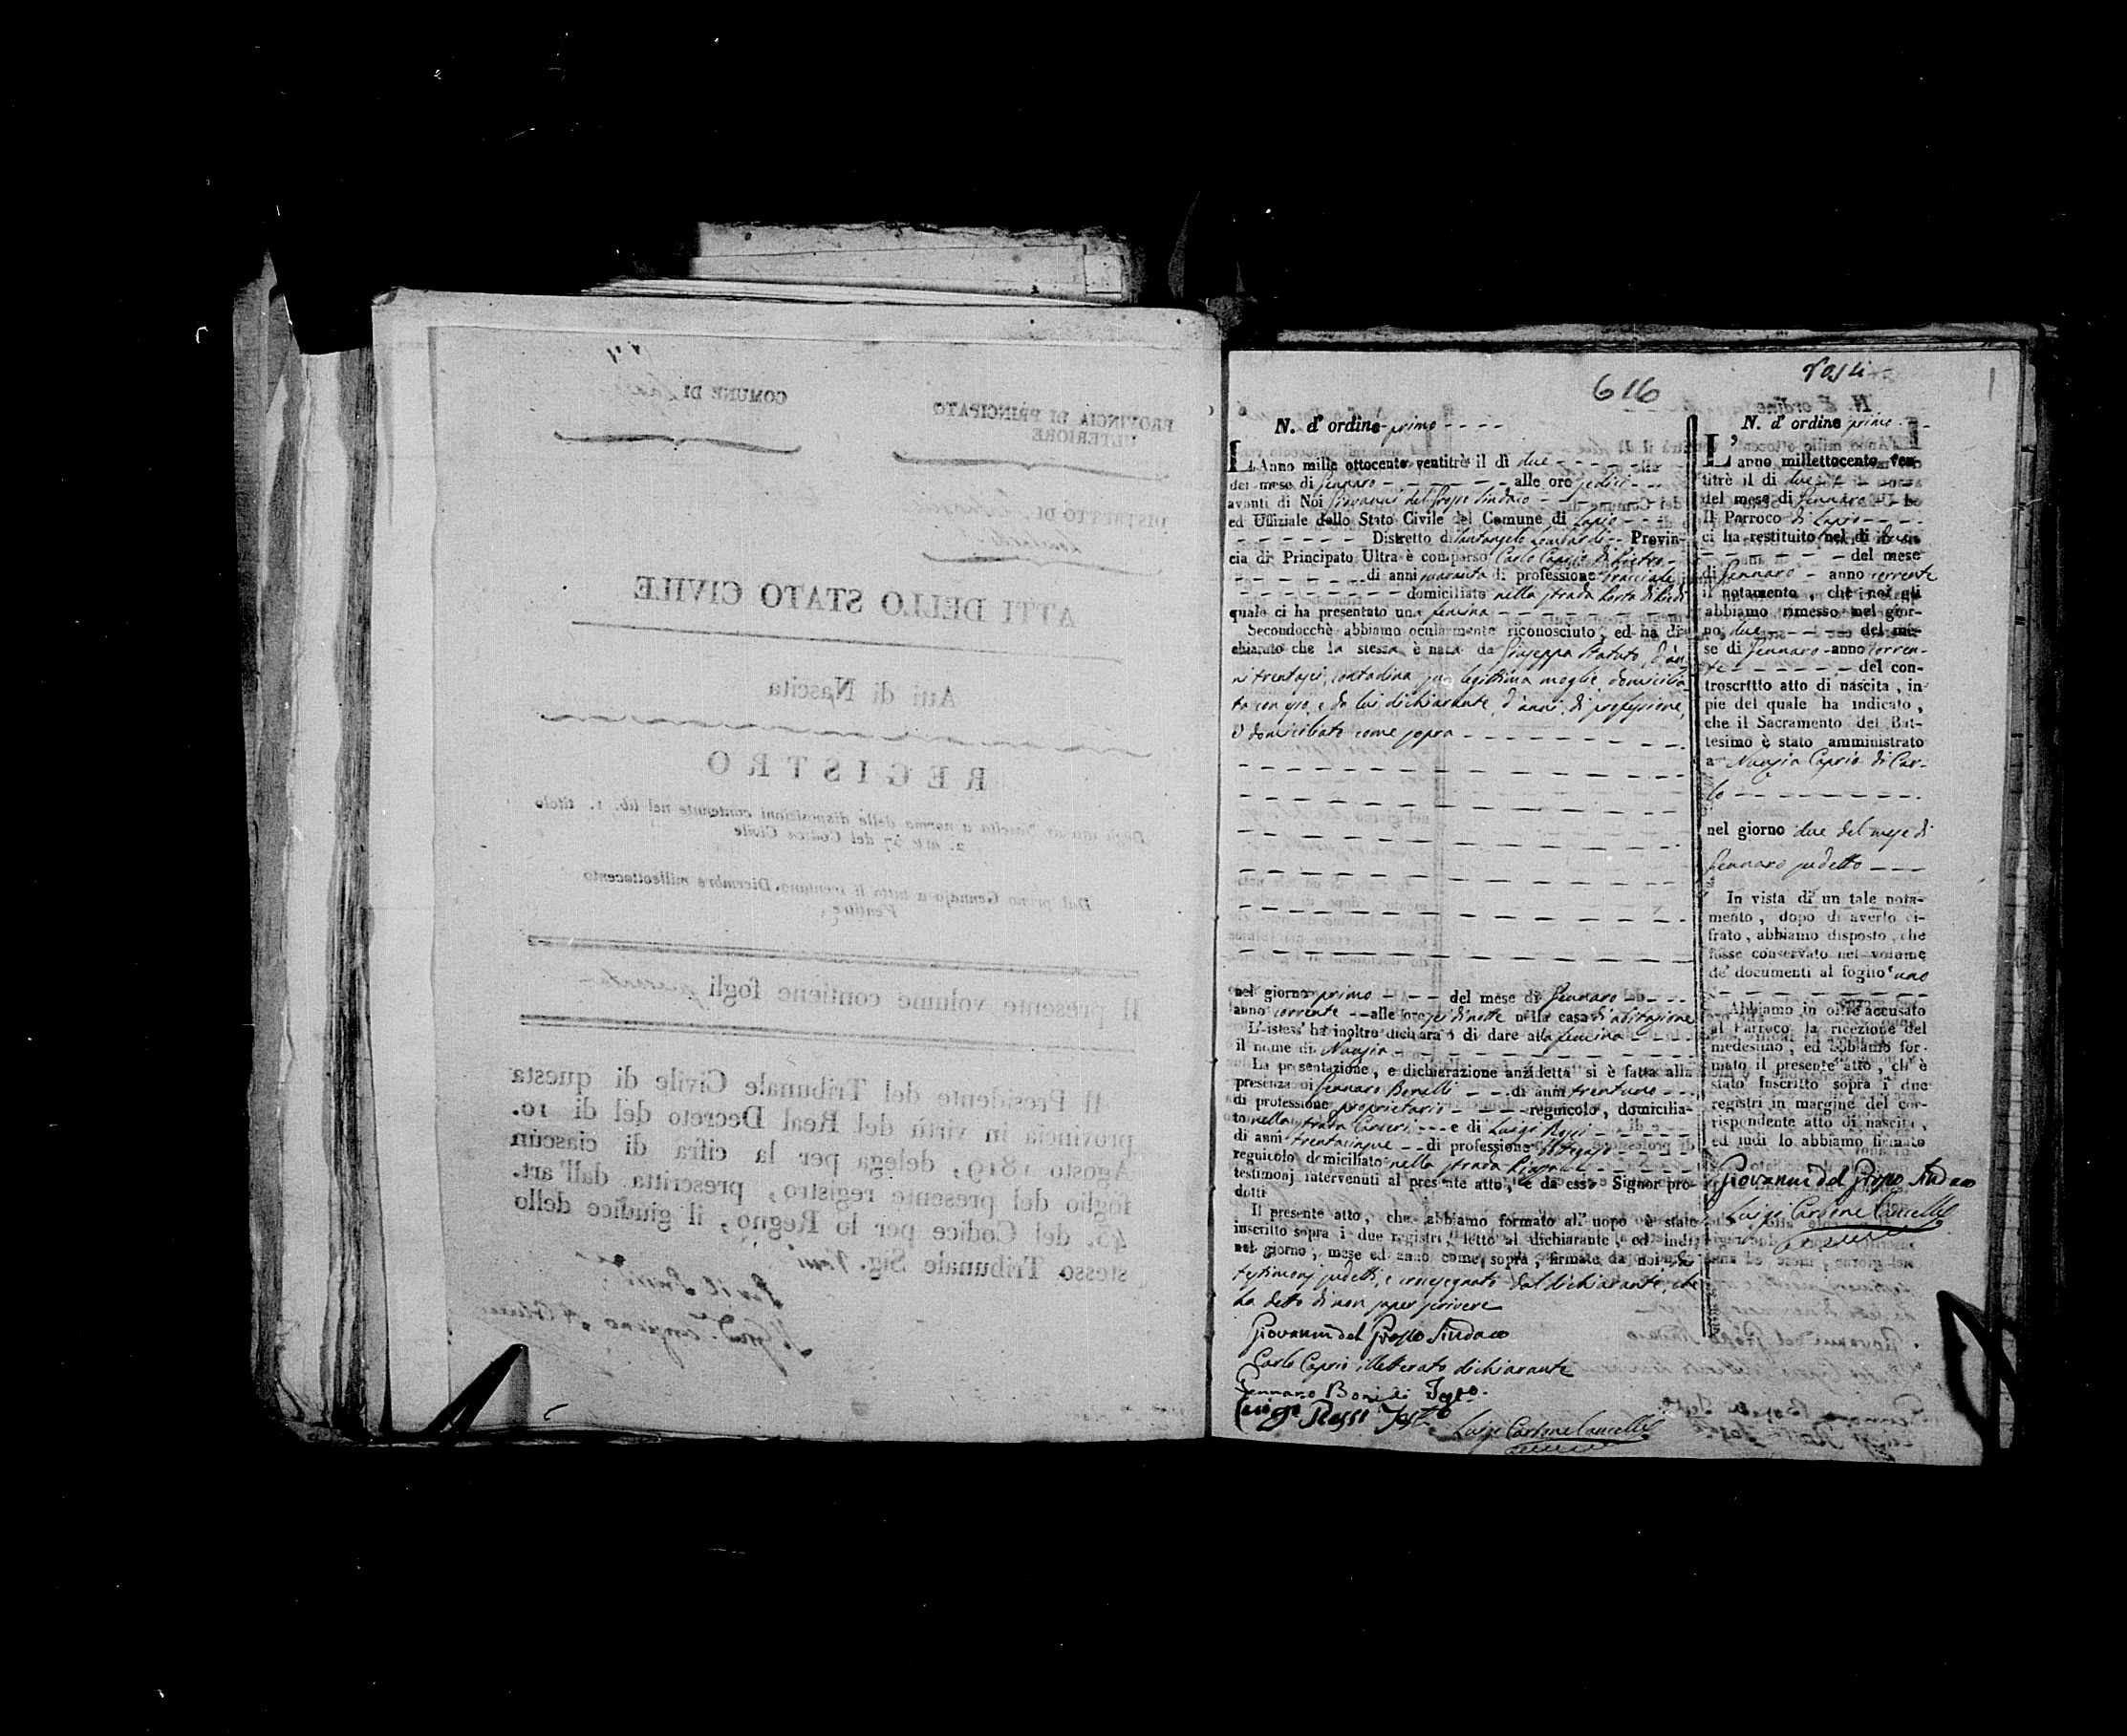 COMUNE DI
PROVINCIA DI PRINCIPATO
ULTERIORE
DISTRETTO DI
ATTI DELLO STATO CIVILE
Atti di Nascita
REGISTRO
Degli atti di Nascita a norma delle disposizioni contenute nel lib. 1. titolo
2. art. 57 del Codice Civile
Dal primo Gennajo a tutto li trentuno Dicembre milleottocento
Ventitre
Il presente volume contiene fogli
Il Presidente del Tribunale Civile di questa
provincia in virtù del Real Decreto del dì 10.
Agosto 1819, delega per la cifra di ciascun
foglio del presente registro, prescritta dall'art.
45. del Codice per lo Regno, il giudice dello
stesso Tribunale Sig.
616
1
N. d' ordine primo
L'Anno mille ottocento ventitrè il dì due
del mese di Gennaro alle ore sedici
avanti di Noi Giovanni del Grosso Sindaco
ed Uffiziale dello Stato Civile del Comune di Lapio
Distretto di Santangelo Lombardi Provin-
cia di Principato Ultra è comparso Carlo Caprio di Pietro
di anni quaranta di professione bracciale
domiciliato nella strada
quale ci ha presentato una femina
Secondocchè abbiamo ocularmente riconosciuto, ed ha di-
chiarato che la stessa è nata da Giuseppa Statuto, d'an-
ni trentasei, contadina sua legittima moglie domicilia-
ta con esso, e da lui dichiarante, d'anni, di professione,
e domiciliato come sopra
nel giorno primo del mese di Gennaro
anno corrente alle ore sei di notte nella casa di abitazione
L'istess' ha inoltre dichiarato di dare alla femina
il nome di Nunzia
La presentazione, e dichiarazione anzidetta si è fatta alla
presenza di Gennaro Bonelli di anni trentuno
di professione proprietario regnicolo, domicilia-
to nella strata Carceri e di Luigi Rossi
di anni trentacinque di professione
regnicolo domiciliato nella strada
testimonj intervenuti al presente atto, e da esso Signor pro-
dotti
Il presente atto, che abbiamo formato all' uopo è stato
inscritto sopra i due registri, letto al dichiarante, ed indi
nel giorno, mese ed anno come sopra, firmato da noi
testimonj sudetti, e crocesegnato dal dichiarante, che
ha detto di non saper scrivere
Giovanni del Grosso Sindaco
Carlo Caprio illetterato dichiarante
Gennaro Bonelli Testo.
Luigi Rossi Testo
Luigi Carbone Cancelle
N. d' ordine primo
L'anno millettocento ven-
titrè il di due
del mese di Gennaro
Il Parroco di Lapio
ci ha restituito nel di due
del mese
di Gennaro anno corrente
il notamento, che noi gli
abbiamo rimesso nel gior-
no due del me-
se di Gennaro anno corren-
te del con-
troscritto atto di nascita, in
pie del quale ha indicato,
che il Sacramento del Bat-
tesimo è stato amministrato
a Nunzia Caprio di Car-
lo
nel giorno due del mese di
Gennaro sudetto
In vista di un tale nota-
mento, dopo di averlo ci-
frato, abbiamo disposto, che
fusse conservato nel volume
de' documenti al foglio uno
Abbiamo in oltre accusato
al Parroco la ricezione del
medesimo, ed abbiamo for-
mato il presente atto, ch' è
stato inscritto sopra i due
registri in margine del cor-
rispondente atto di nascita,
ed indi lo abbiamo firmato
Giovanni del Grosso Sindaco
Luigi Carbone Cancelle